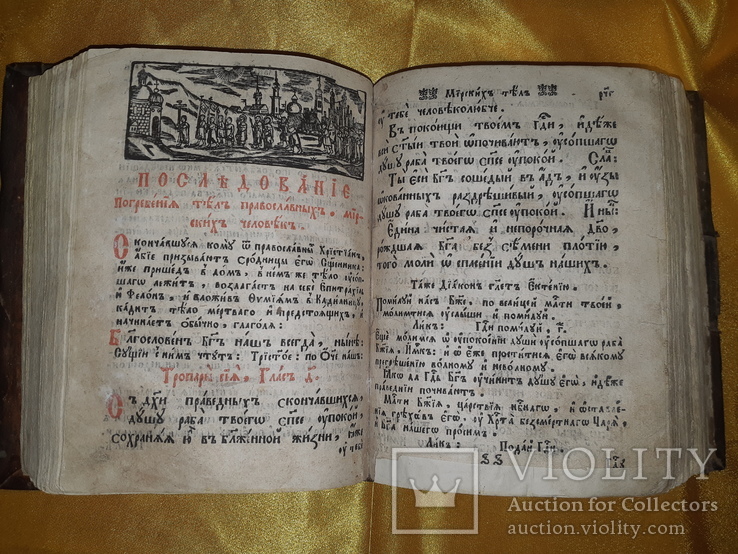 ПОСЛѢДОВАНІЕ
погребенїѧ тѣлъ православныхъ, мїр-
скихъ человѣкъ.
Скончавшусѧ кому ѿ православныхъ Хрїстїанъ,
абїе призываютъ сродницы егѡ Сщенника:
иже пришедъ в домъ, в немже тѣло оусоп-
шагѡ лежитъ, возлагаетъ на себе Епитрахїль
и Фелонь, и вложивъ Ѳимїамъ в Кадилницу,
кадитъ тѣло мертвагѡ и предстоѧщихъ, и
начинаетъ обычно, глаголѧ:
Благословенъ Бг҃ъ нашъ всегда, нынѣ:
Сущїи с нимъ чтутъ: Трис҃тое: по Ѻ҃че нашъ:
Тропарѧ сїѧ. Гласъ д҃.
Съ дх҃и праведныхъ скончавшихсѧ,
душу раба твоегѡ сп҃се оупокой,
сохранѧѧ ю въ блаженной жизни, ꙗже
оу тебе
Мїрскихъ Тѣлъ
рч҃г
оу тебе человѣколюбче.
Въ покоищи твоемъ Гд҃и, идѣже
вси ст҃їи твои ѡпочиваютъ, оусопшагѡ
душу раба твоегѡ сп҃се оупокой. Сла:
Ты еси Бг҃ъ сошедый въ адъ, и оузы
ѡкованныхъ раздрѣшивый, оусопшагѡ
душу раба твоегѡ сп҃се оупокой. И нн҃ѣ:
Едина чистаѧ и непорочнаѧ Дв҃о,
рождшаѧ Бг҃а без сѣмени плотїи,
того моли ѡ спасенїи душъ нашихъ.
Таже Дїаконъ гл҃етъ Ектенїю.
Помилуй насъ Бж҃е, по велицей мл҃ти твоей,
молимтисѧ оуслыши и помилуй.
Ликъ: Гд҃и помилуй, г҃.
Еще молимсѧ ѡ оупокоенїи душѝ оусопшагѡ
раба Бж҃їѧ, Имкъ: и ѡ еже проститисѧ емꙋ всѧкому
прегрѣшенїю волному и неволному.
Ꙗкѡ да Гд҃ь Бг҃ъ оучинитъ душу егѡ, идѣже
праведнїи почиваютъ.
Мл҃ти Бж҃їѧ, царствїѧ нб҃нагѡ, и ѡставле-
нїѧ грѣховъ егѡ, оу Хрс҃та безсмертнагѡ Царѧ,
и Бг҃а нашегѡ просимъ.
Ликъ: Подай Гд҃и.
VIOLITY
Auction for Collectors
auction.violity.com